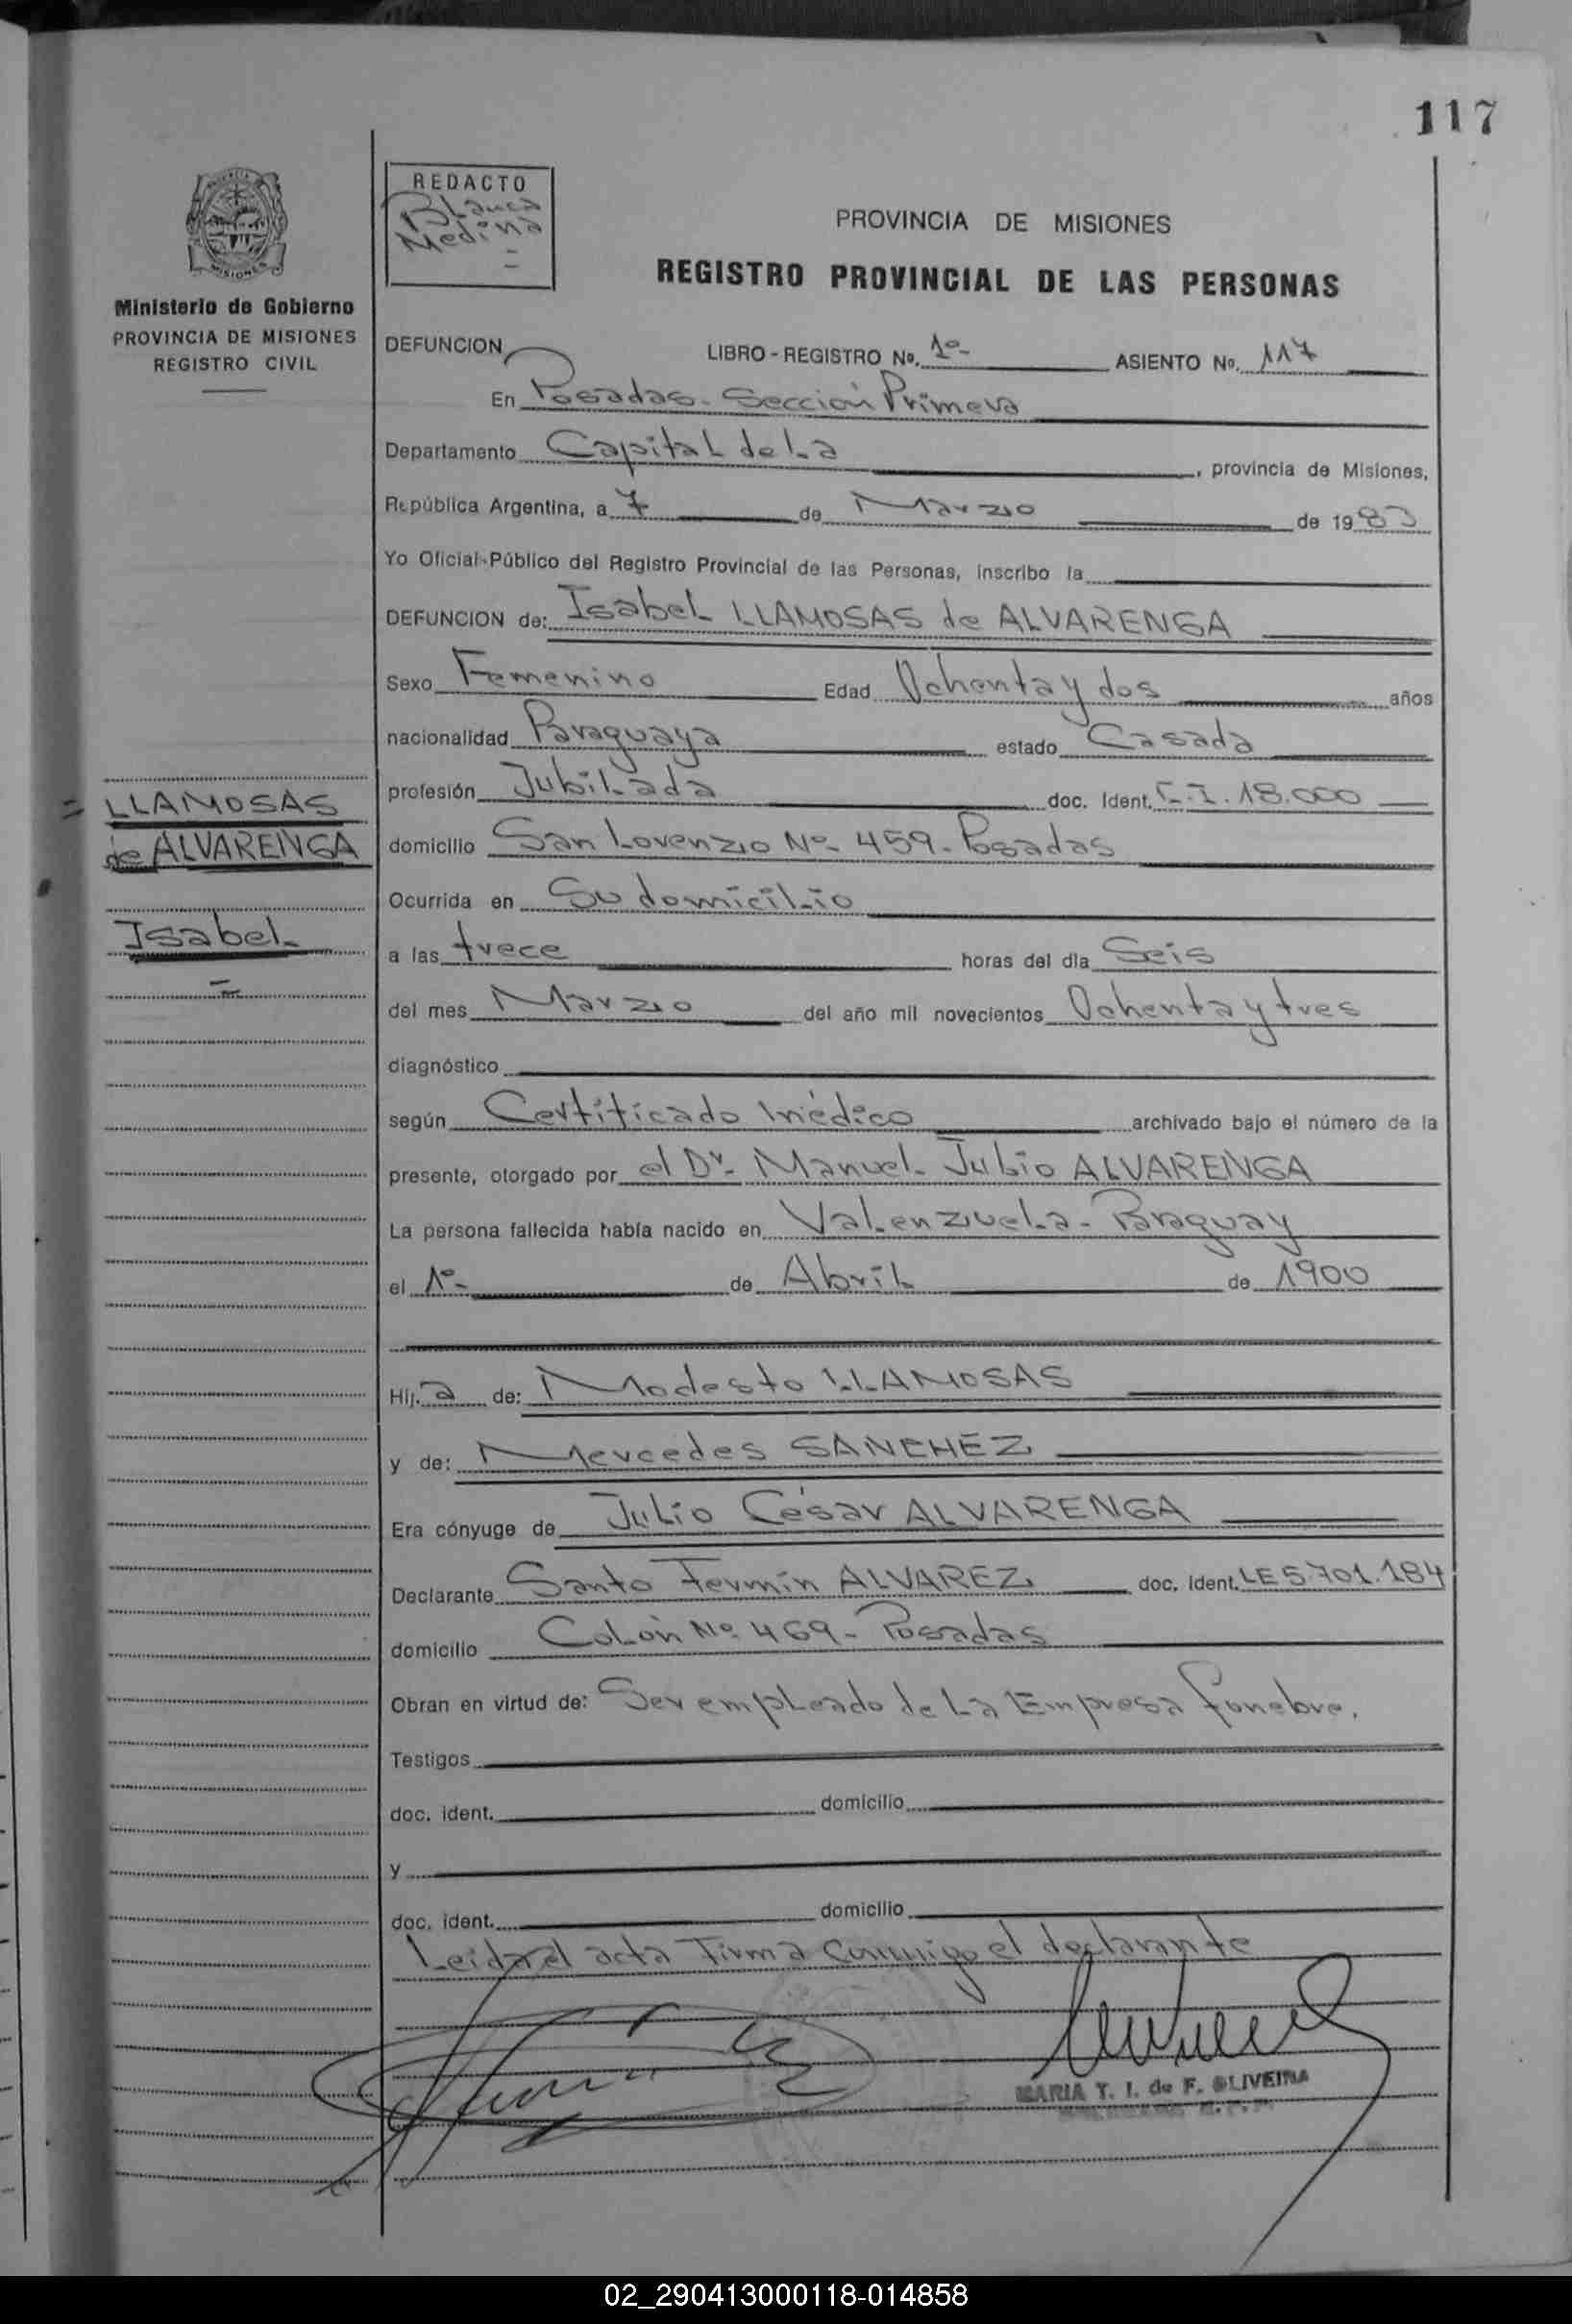 117
REDACTO
Blanca
Medina
PROVINCIA DE MISIONES
REGISTRO PROVINCIAL DE LAS PERSONAS
MISIONES
Ministerio de Gobierno
PROVINCIA DE MISIONES
REGISTRO CIVIL
DEFUNCION LIBRO - REGISTRO No. 1º- ASIENTO No. 117
En Posadas - Sección Primera
Departamento Capital de La , provincia de Misiones,
República Argentina, a 7 de Marzo de 1983
Yo Oficial Público del Registro Provincial de las Personas, inscribo la
DEFUNCION de: Isabel LLAMOSAS de ALVARENGA
Sexo Femenino Edad Ochenta y dos años
nacionalidad Paraguaya estado Casada
profesión Jubilada doc. Ident. C.I. 18.000
= LLAMOSAS
de ALVARENGA
Isabel
=
domicilio San Lorenzo Nº 459 - Posadas
Ocurrida en Su domicilio
a las trece horas del día Seis
del mes Marzo del año mil novecientos Ochenta y tres
diagnóstico
según Certificado médico archivado bajo el número de la
presente, otorgado por el Dr. Manuel Julio ALVARENGA
La persona fallecida había nacido en Valenzuela - Paraguay
el 1º- de Abril de 1900
Hij. a de: Modesto LLAMOSAS
y de: Mercedes SANCHEZ
Era cónyuge de Julio César ALVARENGA
Declarante Santo Fermín ALVAREZ doc. Ident. LE 5.701.184
domicilio Colón Nº 469 - Posadas
Obran en virtud de: Ser empleado de La Empresa funebre.
Testigos
doc. ident. domicilio
y
doc. ident. domicilio
Leida el acta Firma conmigo el declarante
MARIA T. I. de F. OLIVEIRA
02_290413000118-014858